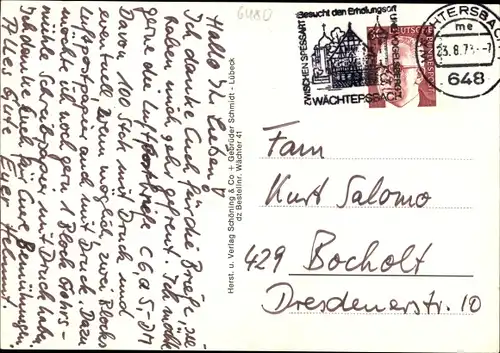 6480
Hallo Ihr Lieben!
Ich danke Euch für die Briefe, sie
haben mich sehr gefreut. Ich möchte
gerne die Luftpostbriefe C6, à 5,- DM
davon 10 Stck mit Druck und
eventuell wenn möglich, zwei Blocks
Luftpostpapier auch mit Druck. Dazu
möchte ich noch gern 1 Block
Schreibpapier mit Druck haben.
Ich danke Euch für Eure Bemühungen.
Alles Gute Euer Helmut.
Herst. u. Verlag Schöning & Co + Gebrüder Schmidt - Lübeck
dz Bestellnr. Wächter 41
Besucht den Erholungsort
ZWISCHEN SPESSART
UND VOGELSBERG
WÄCHTERSBACH
DEUTSCHE BUNDESPOST
WÄCHTERSBACH
me
23.8.73.-7
648
Fam
Kurt Salomo
429 Bocholt
Dresdenerstr. 10